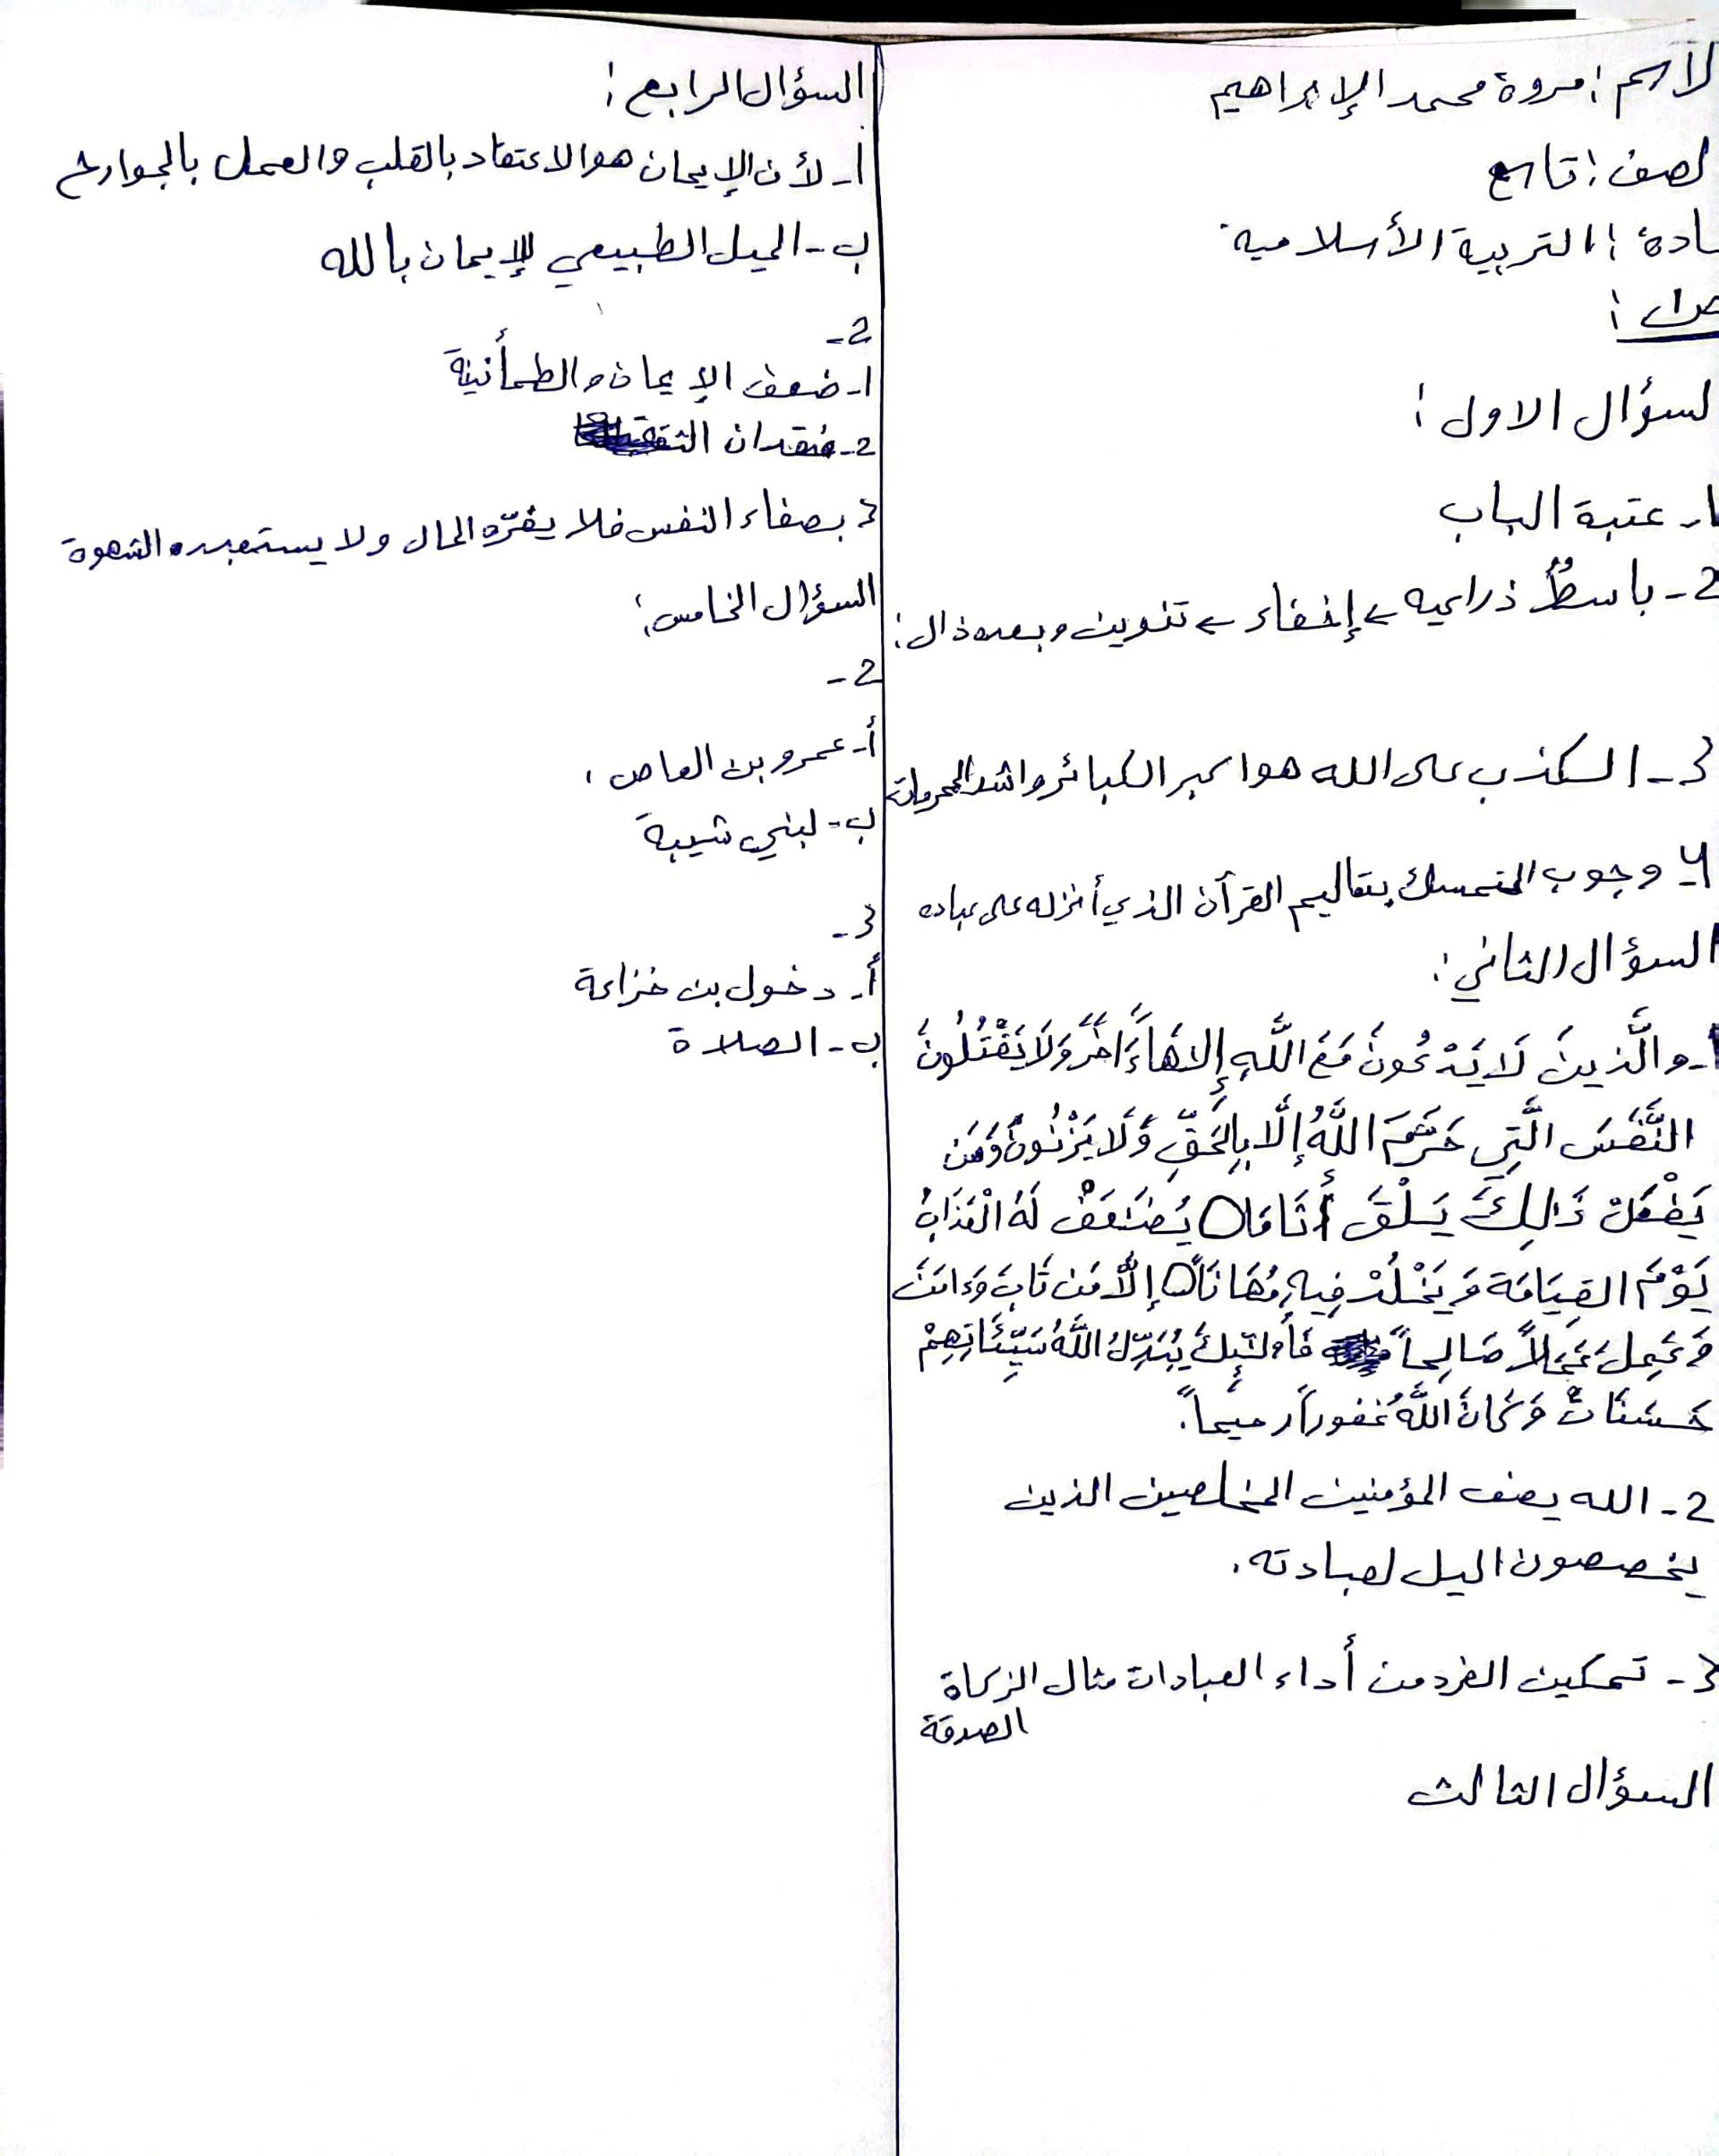 لاسم : مروة محمد الإبراهيم
لصف : تاسع
ادة : التربية الأسلامية
لسؤال الاول :
1- عتبة الباب
2- باسطٌ ذراعيه ← إخفاء ← تنوين وبعده ذال :
3- الكذب على الله هو اكبر الكبائر واشد المحرمات
4- وجوب التمسك بتعاليم القرآن الذي أنزله على عباده
السؤال الثاني :
1- والَّذينَ لَا يَدْعُونَ مَعَ اللَّهِ إِلاهَاً ءَاخَرَ وَلَا يَقْتُلُونَ
النَّفْسَ الَّتِي حَرَّمَ اللَّهُ إِلَّا بِالحَقِّ وَلَا يَزْنُونَ وَمَن
يَفْعَلْ ذَالِكَ يَلْقَ أَثَامَا ○ يُضَعَفْ لَهُ الْعَذَابُ
يَوْمَ القِيَامَة وَيَخْلُدْ فِيهِ مُهَانَاً ○ إلَّا مَن تَابَ وَءَامَنَ
وَعَمِلَ عَمَلاً صَالِحاً فَأُولَئِكَ يُبَدِّلُ اللَّهُ سَيِّئَاتِهِمْ
حَسَنَاتْ وَكَانَ اللَّهُ غفوراً رحيماً.
2- الله يصف المؤمنين المخلصين الذين
يخصصون اليل لعبادته.
3- تمكين الفرد من أداء العبادات مثال الزكاة
الصدقة
السؤال الثالث
السؤال الرابع :
أ- لأن الإيمان هو الاعتقاد بالقلب والعمل بالجوارح
ب- الميل الطبيعي للإيمان بالله
2-
1- ضعف الإيمان والطمأنينة
2- فقدان الثقة
3 بصفاء النفس فلا يغرّه المال ولا يستعبده الشهوة
السؤال الخامس :
2-
أ- عمرو بن العاص .
ب- لبني شيبة
3-
أ- دخول بن خزاعة
ب- الصلاة